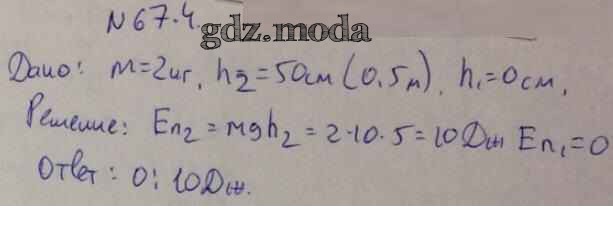 N 67.4.
gdz.moda
Дано: m=2кг, h2=50см (0,5м), h1=0см,
Решение: Eп2=mgh2=2·10·5=10Дж Eп1=0
Ответ: 0; 10Дж.